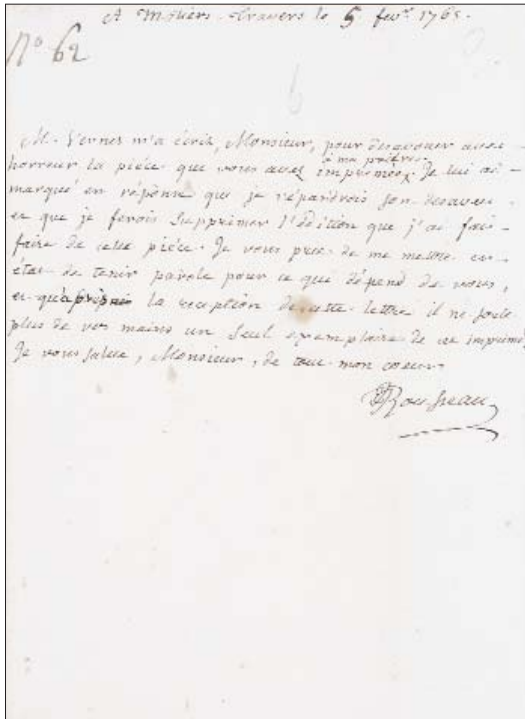 A Môtiers-Travers le 5 fevr. 1765.
N° 62
M. Vernes m'a écrit, Monsieur, pour desavouer avec
à ma prière.
horreur la pièce que vous avez imprimée Je lui ai
marqué en réponse que je répandrois son desaveu
et que je ferois supprimer l'édition que j'ai fait
faire de cette pièce. Je vous prie de me mettre en
état de tenir parole pour ce qui dépend de vous,
et qu'après la reception de cette lettre il ne sorte
plus de vos mains un seul exemplaire de cet imprimé
Je vous salue, Monsieur, de tout mon coeur
JJRousseau